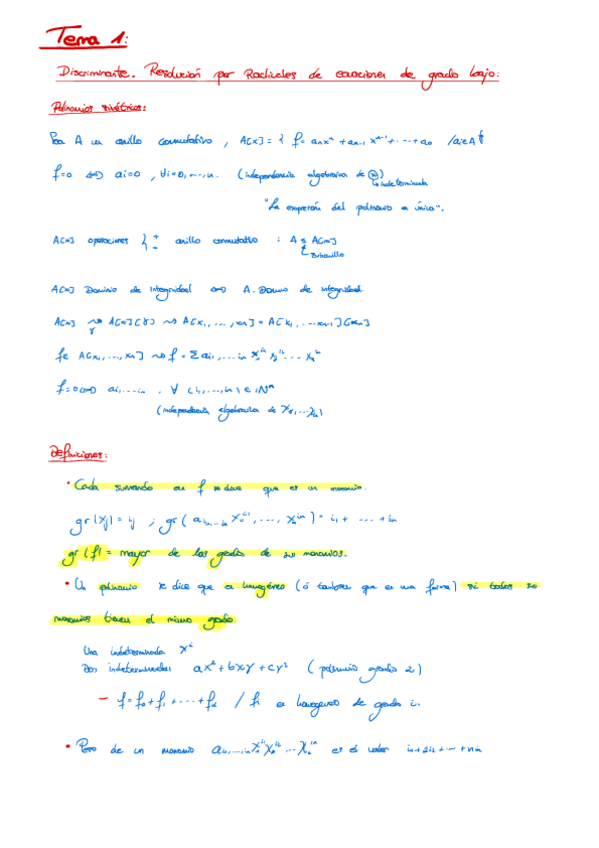 Tema 1:
Discriminante. Resolución por Radicales de ecuaciones de grado bajo:
Polinomios simétricos:
Sea A un anillo conmutativo, A[x] = { f = aₙxⁿ + aₙ₋₁xⁿ⁻¹ + ... + a₀ / aᵢ∈A }
f=0 ⇔ aᵢ=0, ∀i=0,...,n. (independencia algebraica de x)
↳ indeterminada
"La expresión del polinomio es única".
A[x] operaciones { + · anillo conmutativo : A ≤ A[x]
↳ Subanillo
A[x] Dominio de integridad ⇔ A. Dominio de integridad
A[x] ⇝ A[x][Y] ⇝ A[x₁,...,xₙ] = A[x₁,...xₙ₋₁][xₙ]
Y
f∈ A[x₁,...,xₙ] ⇝ f = Σ aᵢ₁,...ᵢₙ x₁ⁱ¹ x₂ⁱ² ... xₙⁱⁿ
f=0 ⇔ aᵢ₁...ᵢₙ . ∀ (i₁,...,iₙ) ∈ ℕⁿ
(independencia algebraica de X₁,...Xₙ)
Definiciones:
• Cada sumando en f se dice que es un monomio.
gr(xⱼ) = iⱼ ; gr(aᵢ₁...ᵢₙ x₁ⁱ¹, ..., xₙⁱⁿ) = i₁ + ... + iₙ
gr(f) = mayor de los grados de sus monomios.
• Un polinomio se dice que es homogéneo (ó también que es una forma) si todos sus
monomios tienen el mismo grado.
Una indeterminada xⁱ
Dos indeterminadas ax² + bxy + cy² (polinomio grado 2)
– f = f₀ + f₁ + ... + f_d / fᵢ es homogéneo de grado i.
• Peso de un monomio aᵢ₁,...,ᵢₙ x₁ⁱ¹ x₂ⁱ² ... xₙⁱⁿ es el valor i₁ + 2i₂ + ... + niₙ